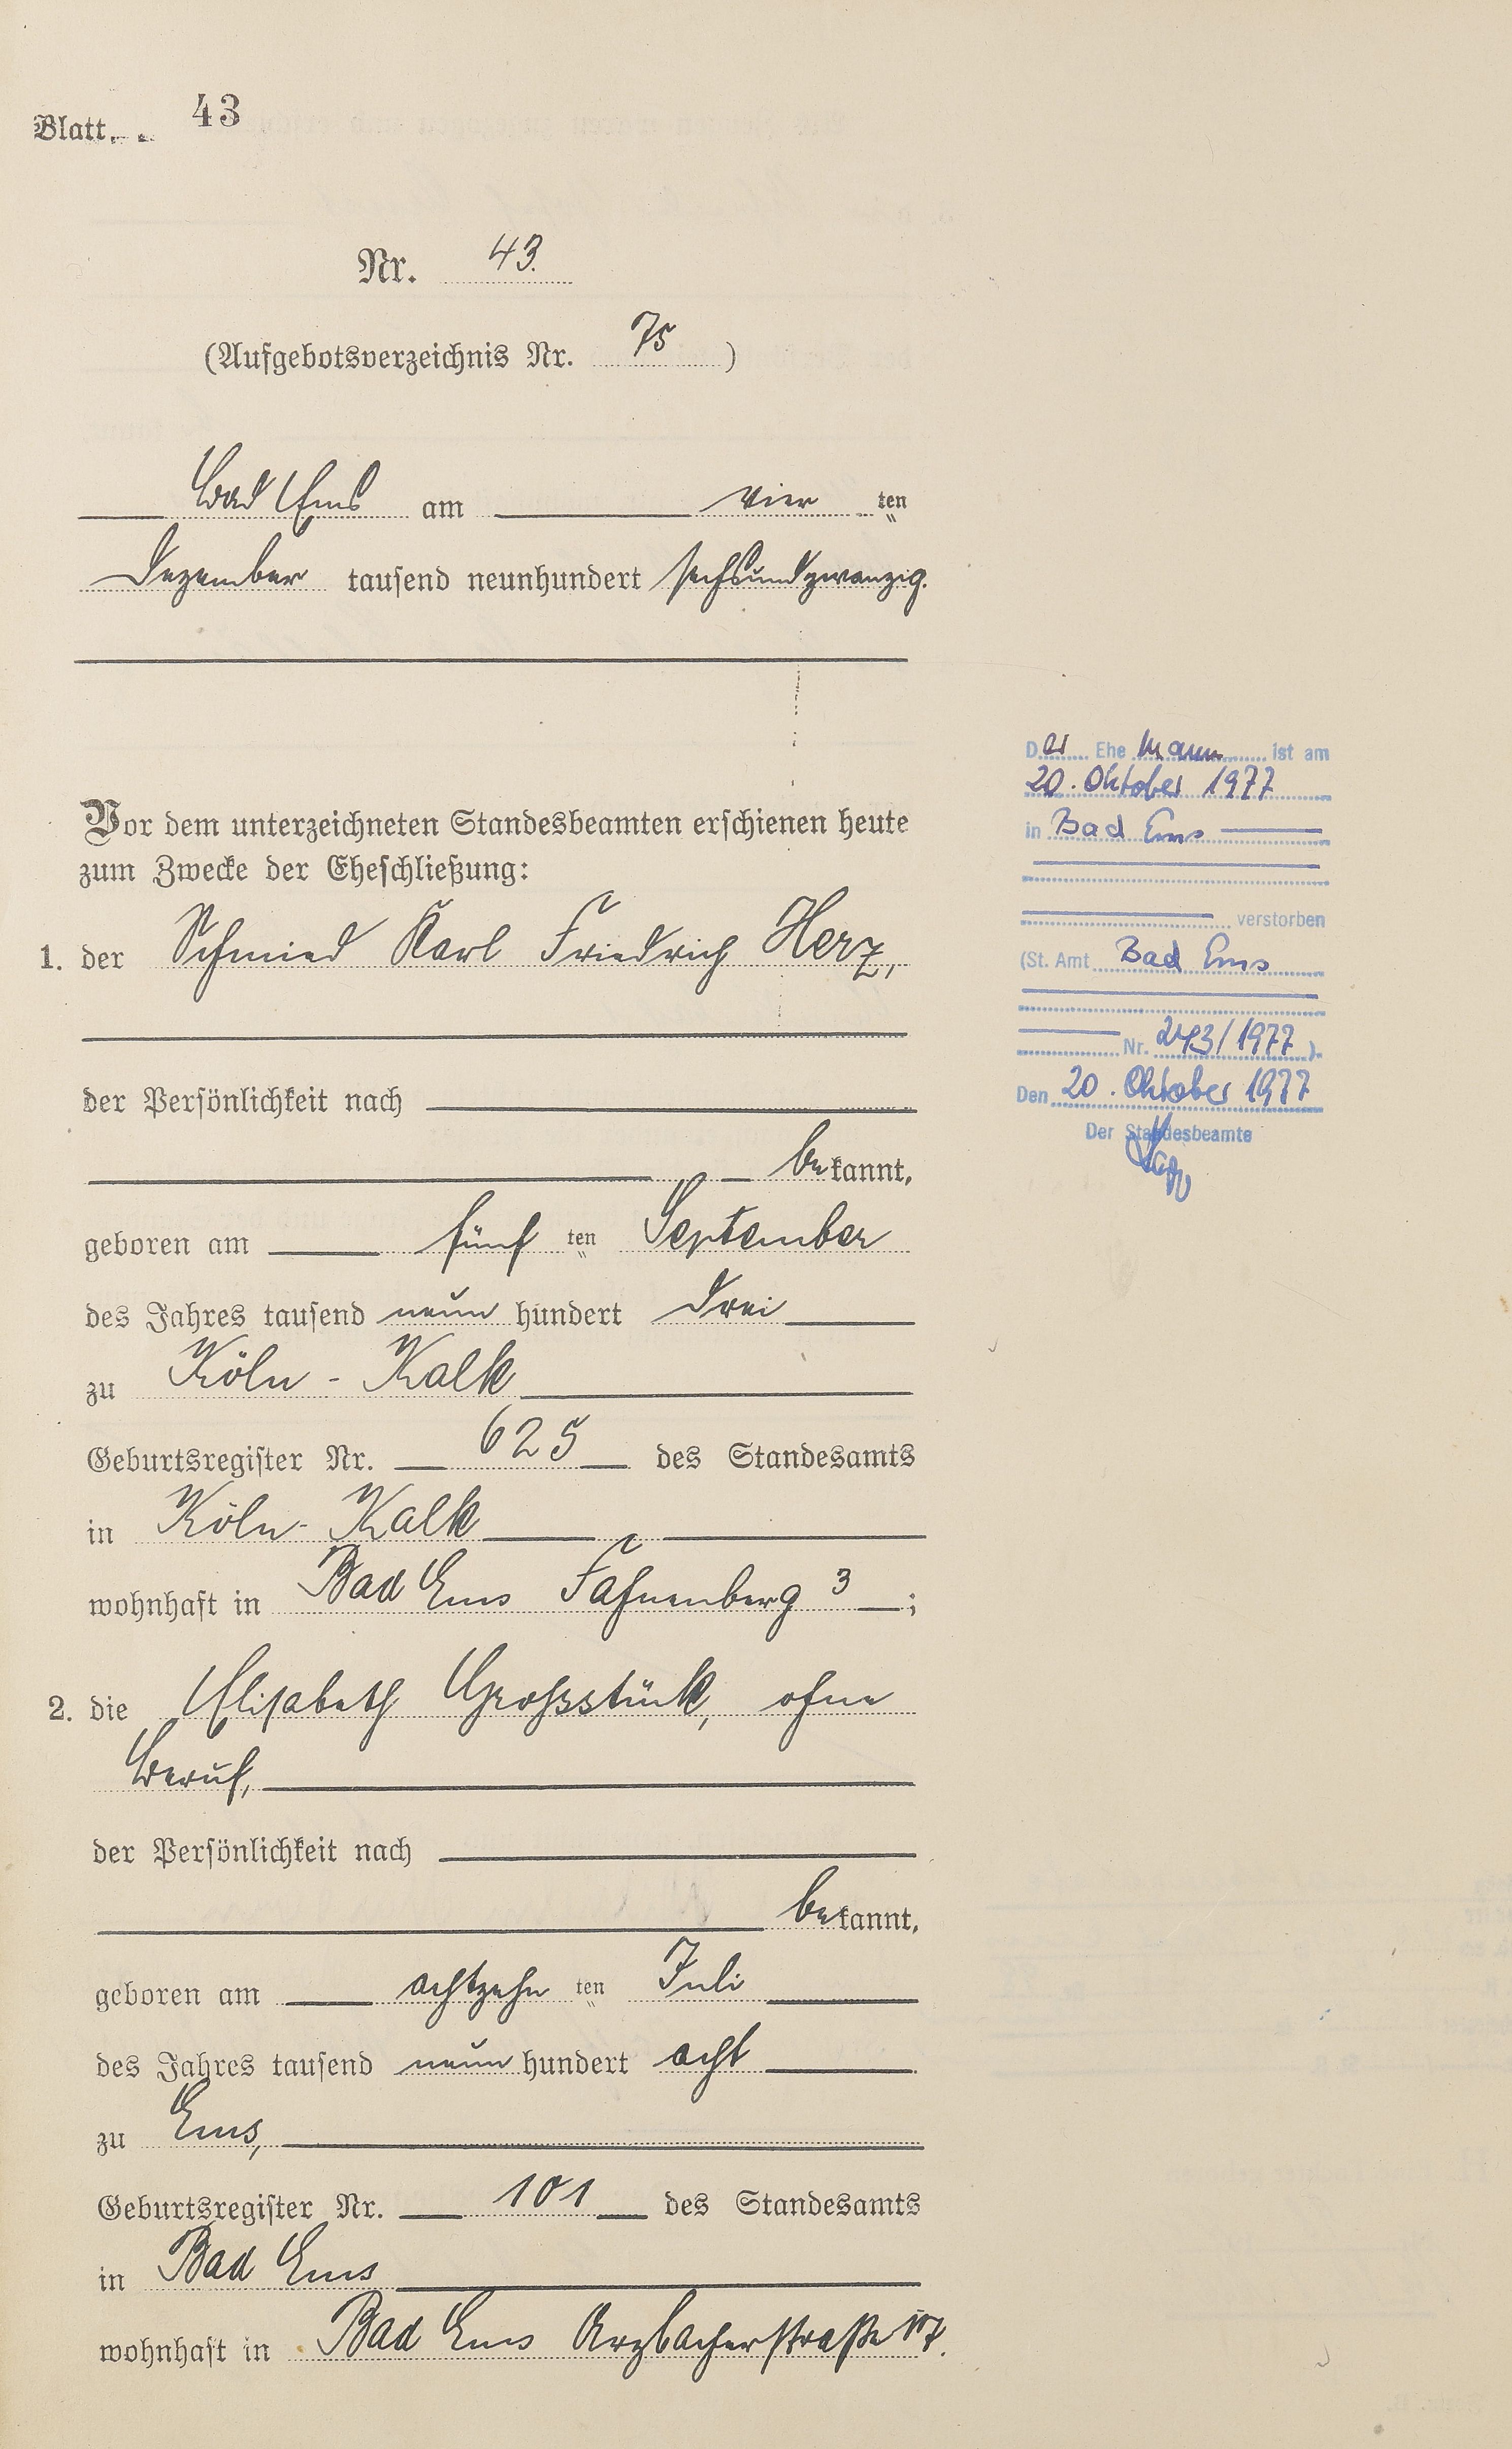 Blatt. 43
Nr. 43.
(Aufgebotsverzeichnis Nr. 75 )
Bad Ems am vier ten
Dezember tausend neunhundert sechsundzwanzig.
Vor dem unterzeichneten Standesbeamten erschienen heute
zum Zwecke der Eheschließung:
1. der Schmied Karl Friedrich Herz,
der Persönlichkeit nach
bekannt,
geboren am fünf ten September
des Jahres tausend neun hundert drei
zu Köln - Kalk
Geburtsregister Nr. 625 des Standesamts
in Köln - Kalk
wohnhaft in Bad Ems Fahnenberg 3 ;
2. die Elisabeth Grossstück, ohne
Beruf,
der Persönlichkeit nach
bekannt,
geboren am achtzehn ten Juli
des Jahres tausend neun hundert acht
zu Ems,
Geburtsregister Nr. 101 des Standesamts
in Bad Ems
wohnhaft in Bad Ems Arzbacherstraße 107.
Der Ehe Mann ist am
20. Oktober 1977
in Bad Ems
verstorben
(St. Amt Bad Ems
Nr. 243/1977 ).
Den 20. Oktober 1977
Der Standesbeamte